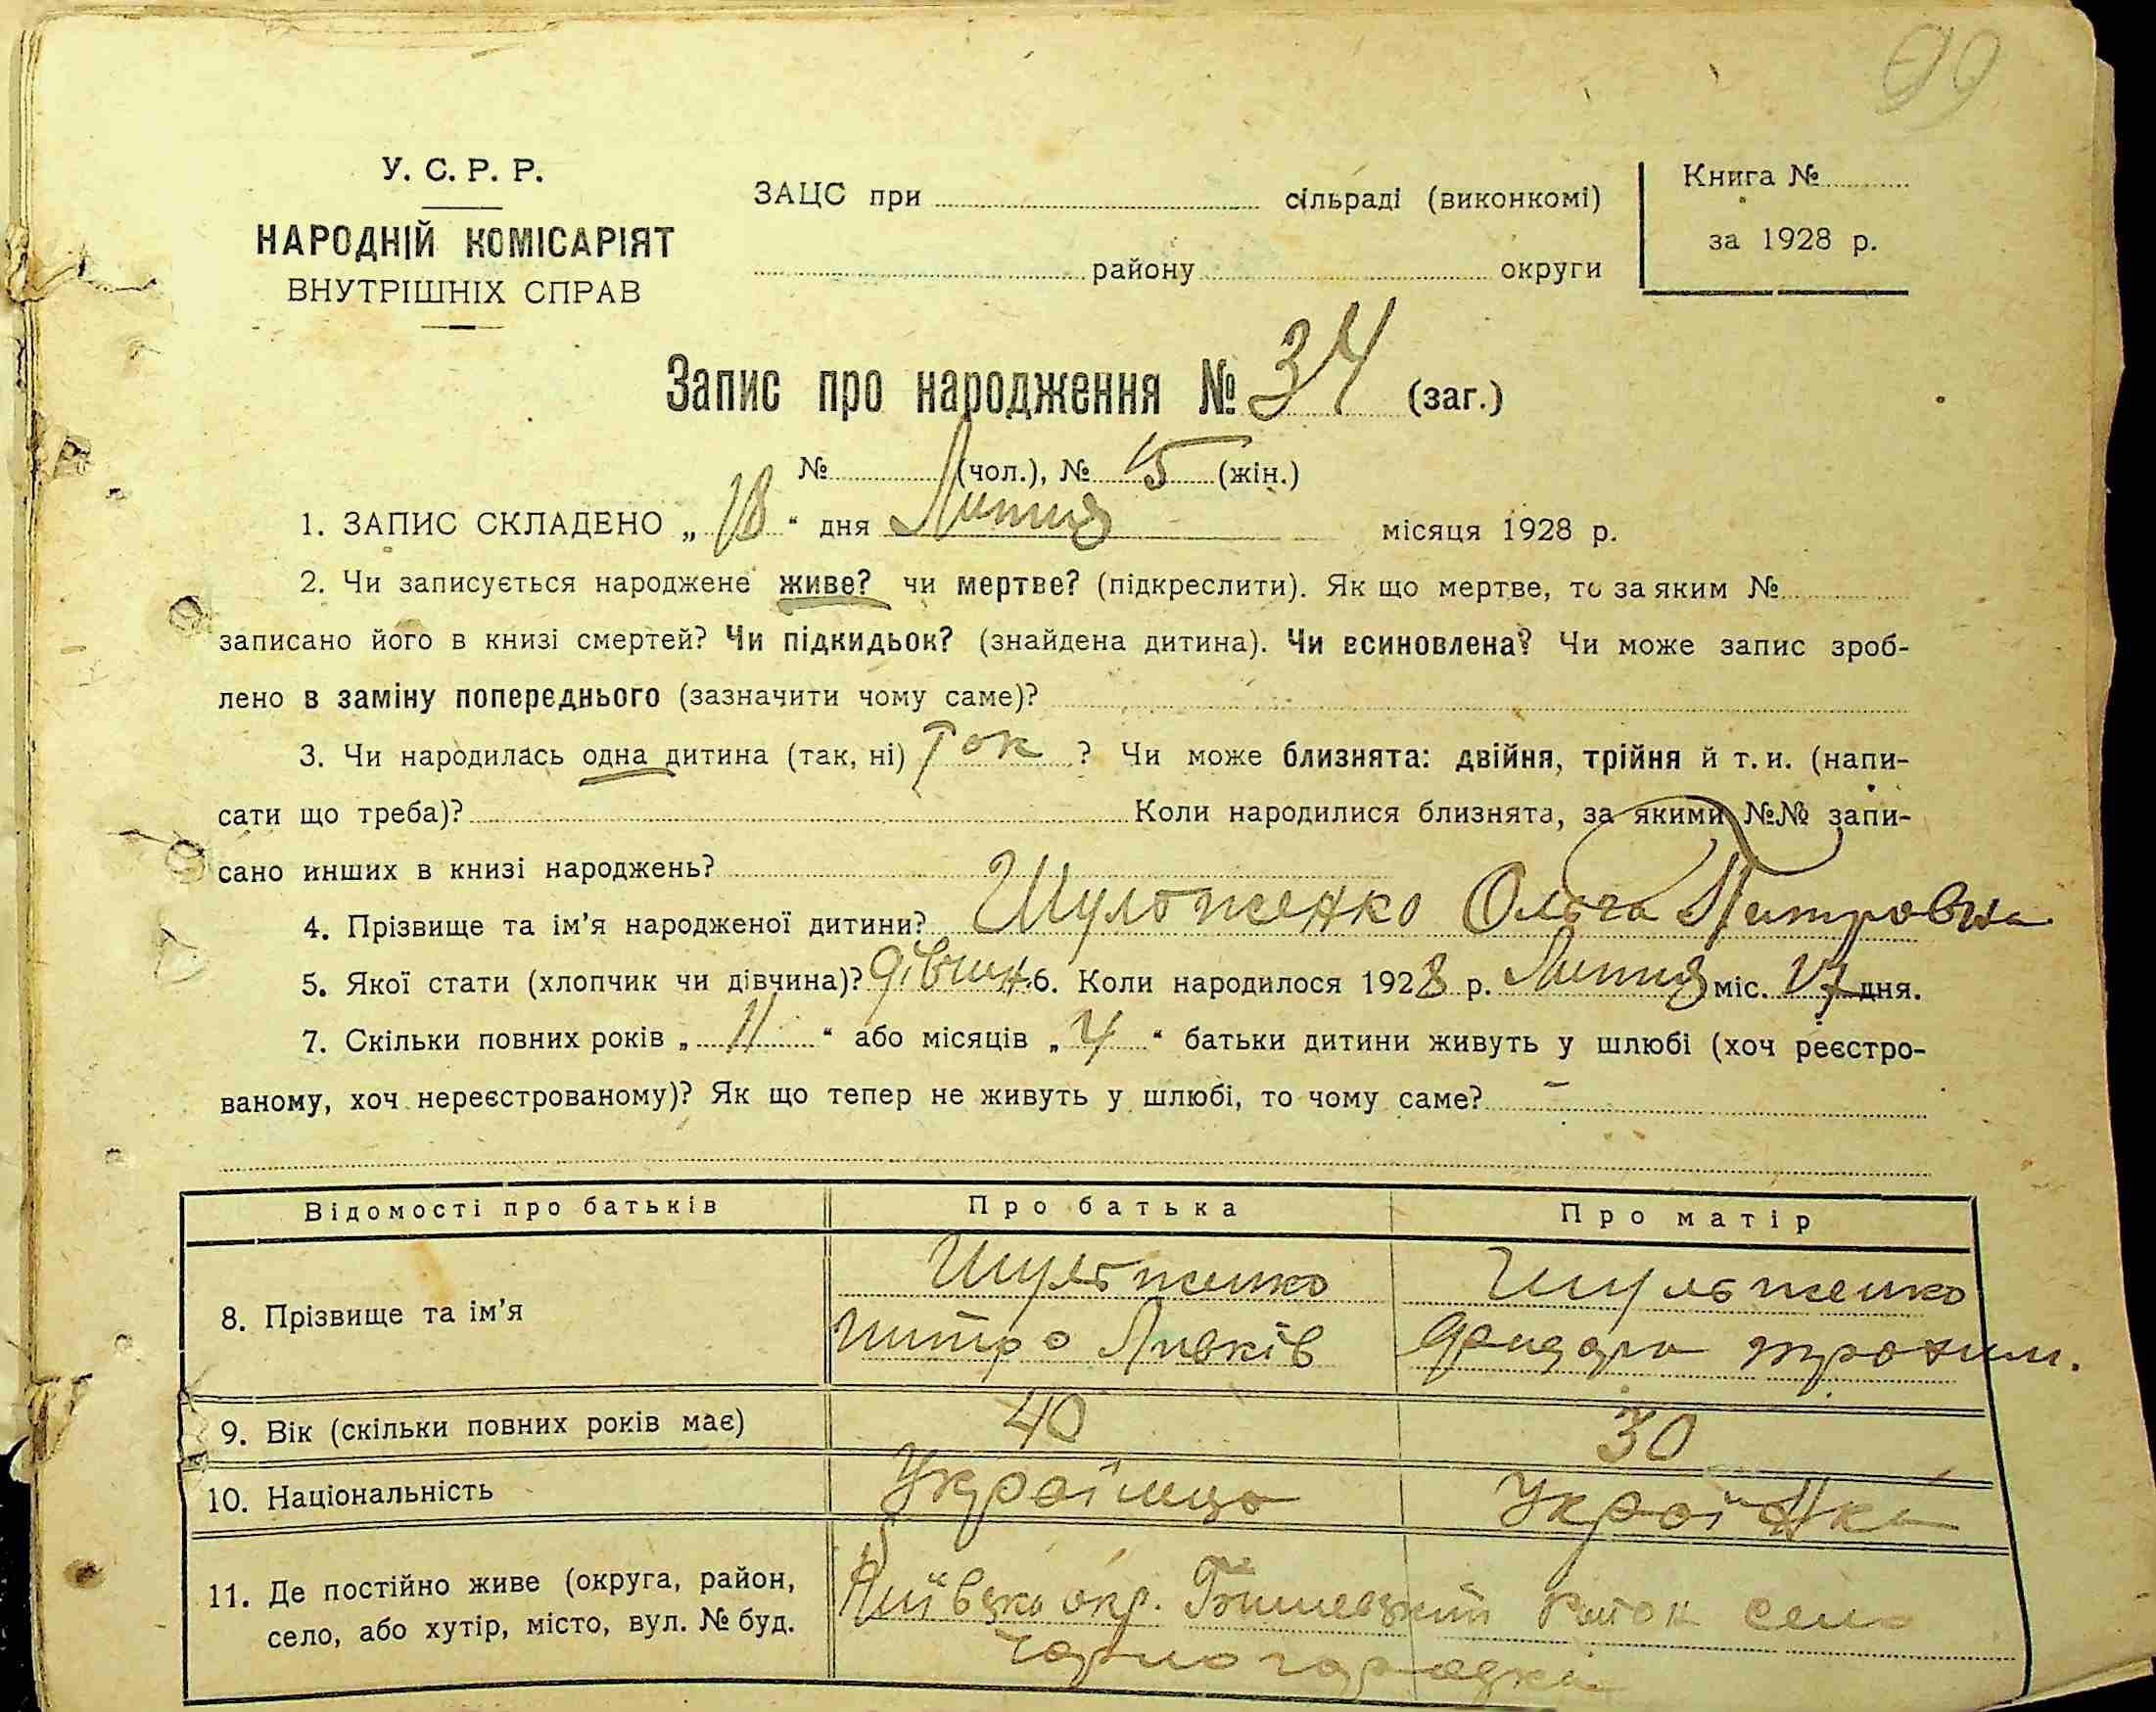 99
У. С. Р. Р.
НАРОДНІЙ КОМІСАРІЯТ
ВНУТРІШНІХ СПРАВ
ЗАЦС при сільраді (виконкомі)
району округи
Книга №
за 1928 р.
Запис про народження № 34 (заг.)
№ (чол.), № 15 (жін.)
1. ЗАПИС СКЛАДЕНО „ 18 “ дня Липня місяця 1928 р.
2. Чи записується народжене живе? чи мертве? (підкреслити). Як що мертве, то за яким №
записано його в книзі смертей? Чи підкидьок? (знайдена дитина). Чи всиновлена? Чи може запис зроб-
лено в заміну попереднього (зазначити чому саме)?
3. Чи народилась одна дитина (так, ні) Так ? Чи може близнята: двійня, трійня й т. и. (напи-
сати що треба)? Коли народилися близнята, за якими №№ запи-
сано инших в книзі народжень?
4. Прізвище та ім’я народженої дитини? Шульженко Ольга Питровна
5. Якої стати (хлопчик чи дівчина)? дівчин. 6. Коли народилося 1928 р. Липня міс. 17 дня.
7. Скільки повних років „ 11 “ або місяців „ 4 “ батьки дитини живуть у шлюбі (хоч реєстро-
ваному, хоч нереєстрованому)? Як що тепер не живуть у шлюбі, то чому саме? –
Відомості про батьків Про батька Про матір
8. Прізвище та ім’я
Шульженко
Шульженко
9. Вік (скільки повних років має) 40 30
10. Національність Українць Українка
11. Де постійно живе (округа, район,
село, або хутір, місто, вул. № буд.
Київська окр. Бишевський Район село
Чорногородка